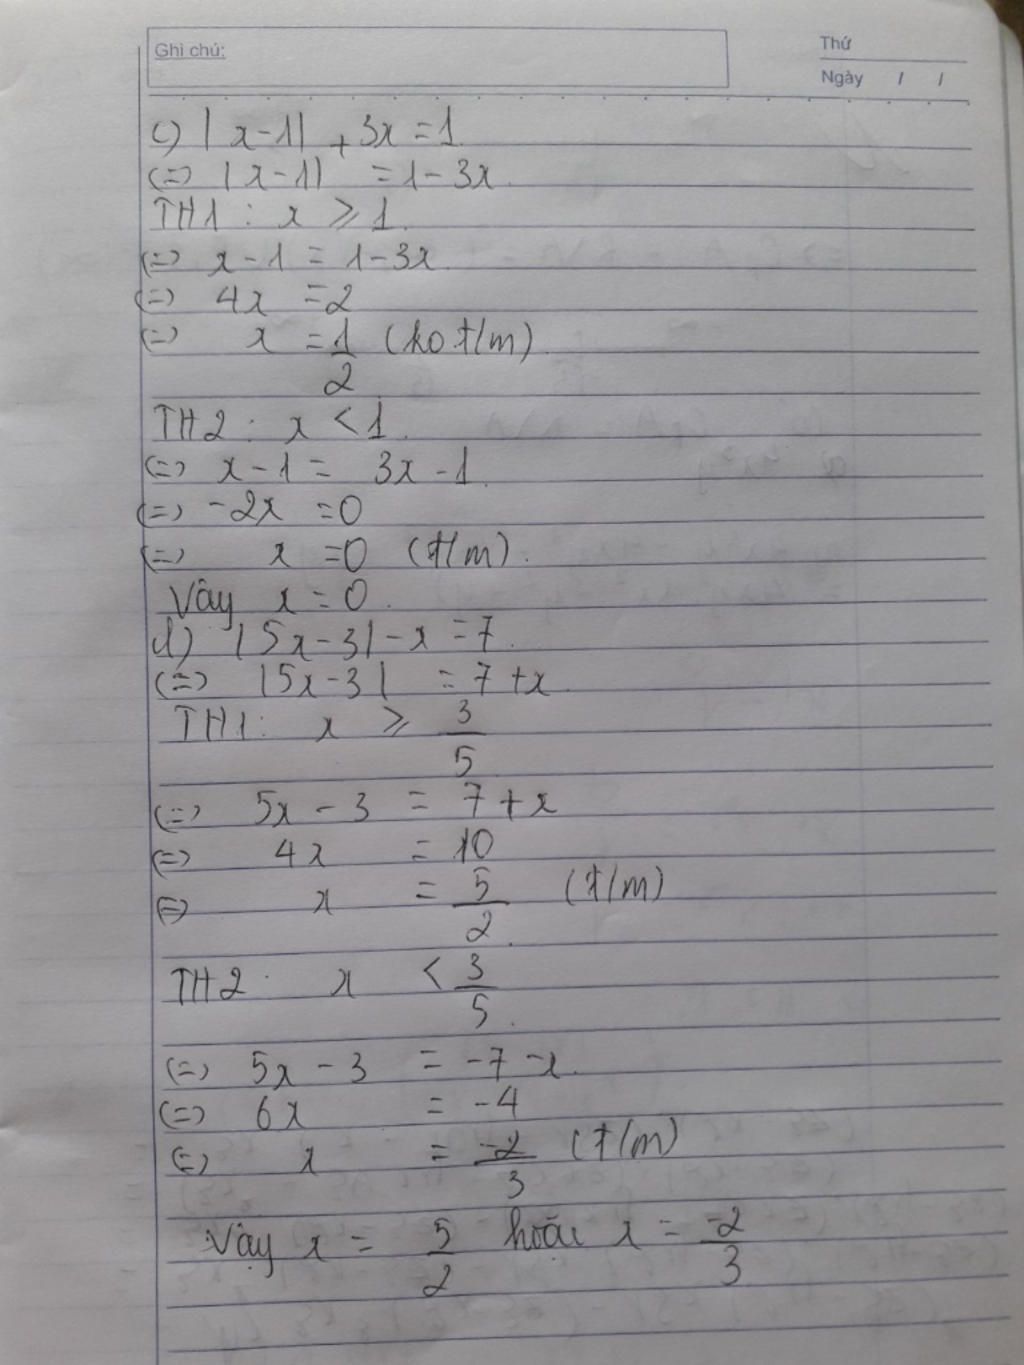 Ghi chú:
Thứ
Ngày / /
c) |x-1| + 3x = 1
(=) |x-1| = 1-3x
TH1: x ≥ 1.
(=) x-1 = 1-3x
(=) 4x = 2
(=) x = 1/2 (ko t/m)
TH2: x < 1.
(=) x-1 = 3x-1
(=) -2x = 0
(=) x = 0 (t/m).
Vây x = 0.
d) |5x-3| - x = 7.
(=) |5x-3| = 7+x.
TH1: x ≥ 3/5
(=) 5x-3 = 7+x
(=) 4x = 10
(=) x = 5/2 (t/m)
TH2: x < 3/5.
(=) 5x-3 = -7-x.
(=) 6x = -4
(=) x = -2/3 (t/m)
Vậy x = 5/2 hoặc x = -2/3